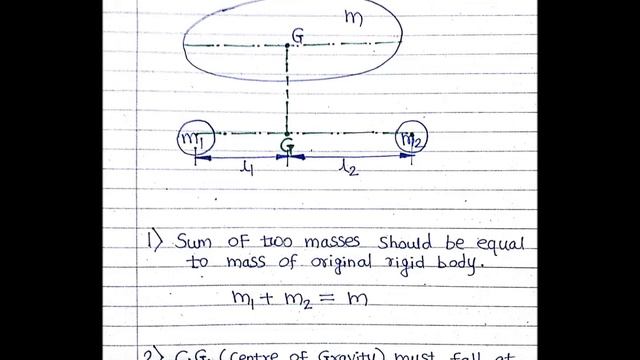 m
G
m1
G
m2
l1
l2
1) Sum of two masses should be equal
to mass of original rigid body.
m1 + m2 = m
2) C.G. (Centre of Gravity) must fall at